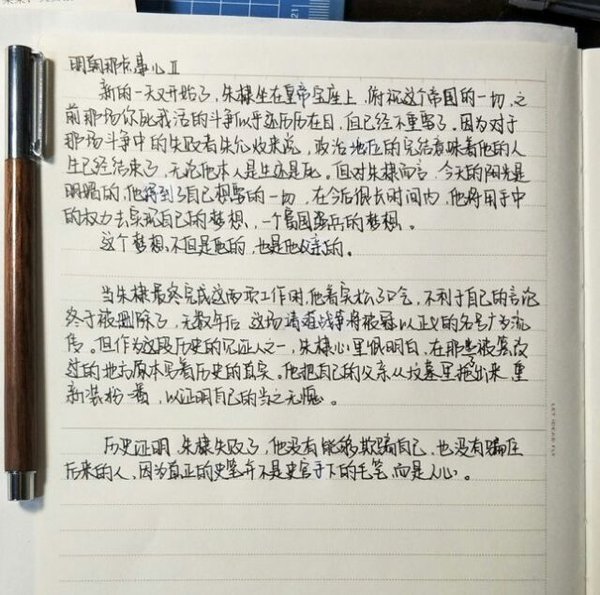 明朝那些事儿II
新的一天又开始了，朱棣坐在皇帝宝座上，俯视这个帝国的一切，之
前那场你死我活的斗争似乎还历历在目，但已经不重要了。因为对于
那场斗争中的失败者朱允炆来说，政治地位的完结意味着他的人
生已经结束了，无论他本人是生还是死。但对朱棣而言，今天的阳光是
明媚的，他得到了自己想要的一切，在今后很长时间内，他将用手中
的权力去实现自己的梦想，一个富国强兵的梦想。
这个梦想不但是他的，也是他父亲的。
当朱棣最终完成这两项工作时，他着实松了口气，不利于自己的言论
终于被删除了，无数年后，这场靖难战争将被冠以正义的名号广为流
传。但作为这段历史的见证人之一，朱棣心里很明白，在那些被篡改
过的地方原本写着历史的真实。他把自己的父亲从坟墓里拖了出来，重
新装扮一番，以证明自己的当之无愧。
历史证明，朱棣失败了，他没有能够欺骗自己，也没有骗住
后来的人，因为真正的史笔并不是史官手下的毛笔，而是人心。